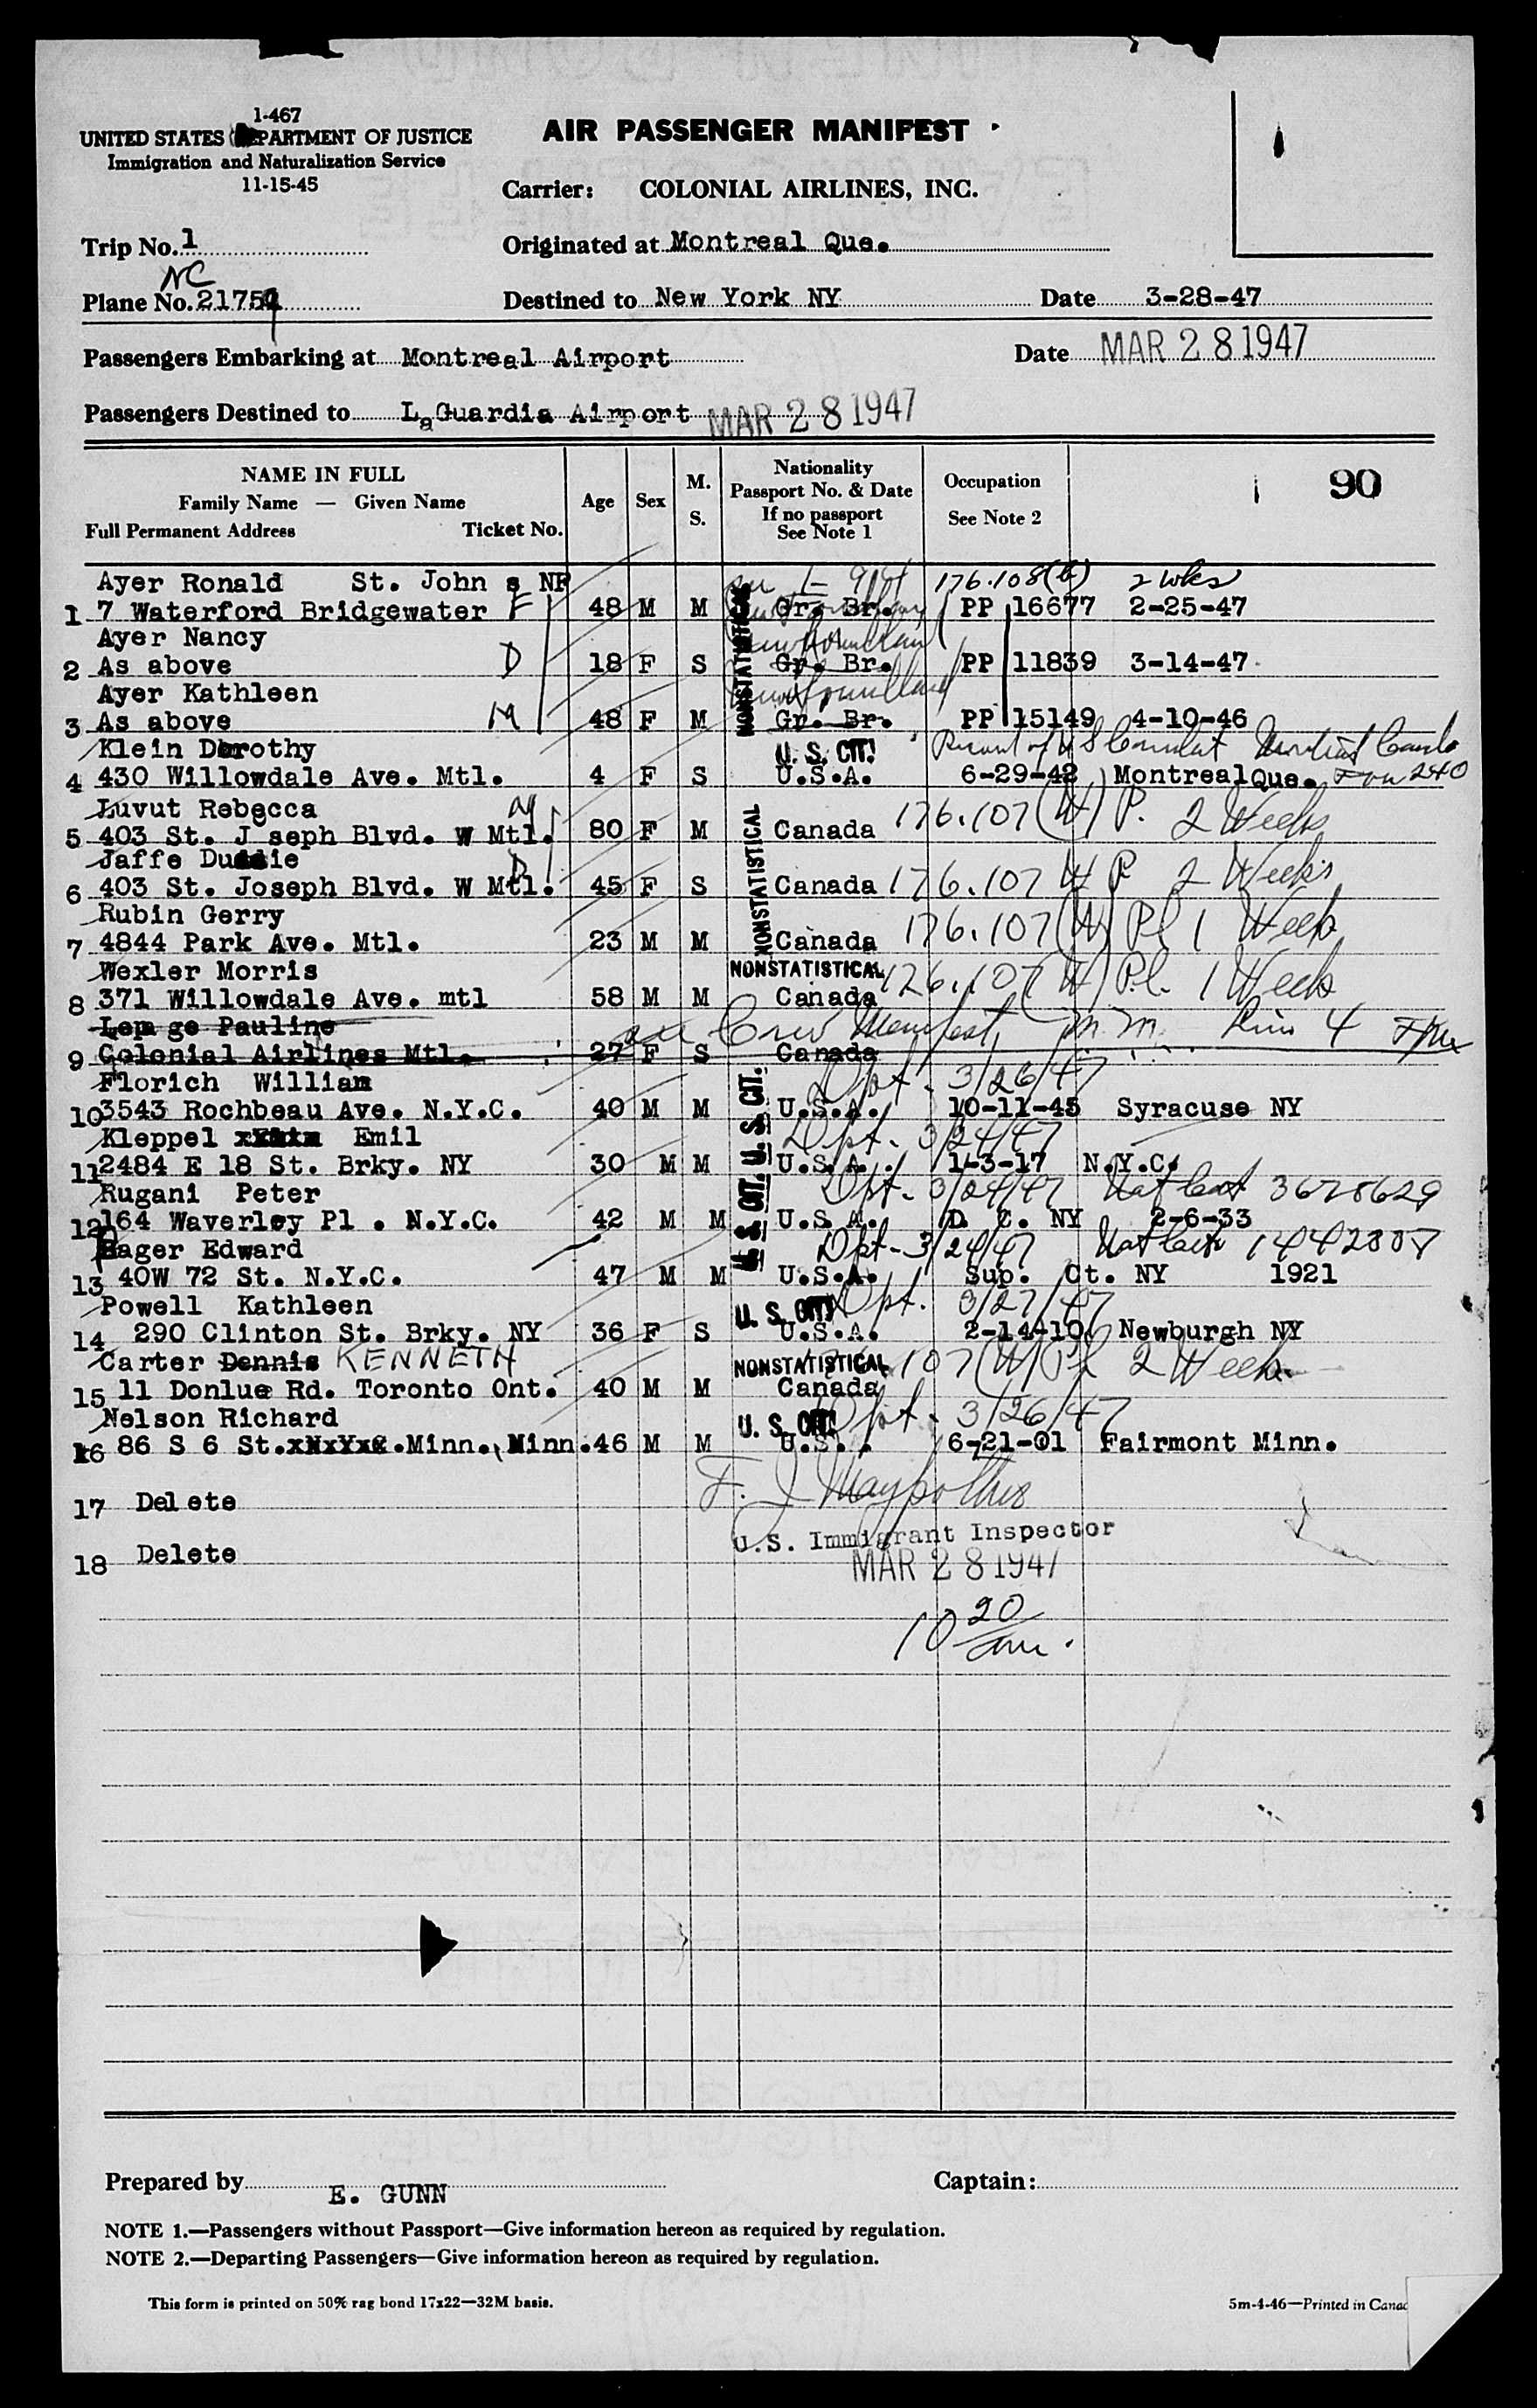 1-467
UNITED STATES DEPARTMENT OF JUSTICE
Immigration and Naturalization Service
11-15-45
AIR PASSENGER MANIFEST
Carrier: COLONIAL AIRLINES, INC.
Trip No. 1
Originated at Montreal Que.
NC
Plane No. 21759
Destined to New York NY
Date 3-28-47
Passengers Embarking at Montreal Airport
Date MAR 28 1947
Passengers Destined to LaGuardia Airport MAR 28 1947
NAME IN FULL
Family Name — Given Name
Full Permanent Address Ticket No.
Age
Sex
M.
S.
Nationality
Passport No. & Date
If no passport
See Note 1
Occupation
See Note 2
90
Ayer Ronald St. John s NF 176.108(b) 2 wks
1 7 Waterford Bridgewater F 48 M M Gr. Br. PP 16677 2-25-47
Ayer Nancy Newfoundland
2 As above D 18 F S Gr. Br. PP 11839 3-14-47
Ayer Kathleen Newfoundland
3 As above M 48 F M Gr. Br. PP 15149 4-10-46
NONSTATISTICAL
Klein Dorothy U. S. CIT. Record of U S Consulat Montreal Canada
4 430 Willowdale Ave. Mtl. 4 F S U.S.A. 6-29-42 Montreal Que. Form 240
Luvut Rebecca
5 403 St. J seph Blvd. W Mtl. 80 F M Canada 176.107(W) P. 2 Weeks
Jaffe Duddie D
6 403 St. Joseph Blvd. W Mtl. 45 F S Canada 176.107 W P 2 Weeks
NONSTATISTICAL
Rubin Gerry
7 4844 Park Ave. Mtl. 23 M M Canada 176.107(W) Pl 1 Week
Wexler Morris NONSTATISTICAL
8 371 Willowdale Ave. mtl 58 M M Canada 176.107(W) Pl. 1 Week
Lepa ge Pauline see Crew Manifest, Line 4
9 Colonial Airlines Mtl. 27 F S Canada
Florich William Dpt. 3/26/47
10 3543 Rochbeau Ave. N.Y.C. 40 M M U.S.A. 10-11-45 Syracuse NY
U. S. CIT.
Kleppel Emil Dpt. 3/24/47
11 2484 E 18 St. Brky. NY 30 M M U.S.A. 1-3-17 N.Y.C.
Rugani Peter Dpt. 3/24/47 Nat Cert 3628629
12 164 Waverley Pl . N.Y.C. 42 M M U.S A. D. C. NY 2-6-33
U. S. CIT.
Eager Edward Dpt-3/24/47
13 40W 72 St. N.Y.C. 47 M M U.S.A. Sup. Ct. NY 1921
Powell Kathleen U. S. CIT. Dpt. 3/27/47
14 290 Clinton St. Brky. NY 36 F S U.S.A. 2-14-10 Newburgh NY
Carter Dennis KENNETH NONSTATISTICAL 107(W) Pl 2 Weeks
15 11 Donlue Rd. Toronto Ont. 40 M M Canada
Nelson Richard U. S. CIT. Dpt. 3/26/47
16 86 S 6 St.xNxYxC.Minn., Minn. 46 M M U.S. . 6-21-01 Fairmont Minn.
17 Delete
U.S. Immigrant Inspector
18 Delete MAR 28 1947
10 20 am.
Prepared by E. GUNN
Captain:
NOTE 1.—Passengers without Passport—Give information hereon as required by regulation.
NOTE 2.—Departing Passengers—Give information hereon as required by regulation.
This form is printed on 50% rag bond 17x22—32M basis.
5m-4-46—Printed in Canad